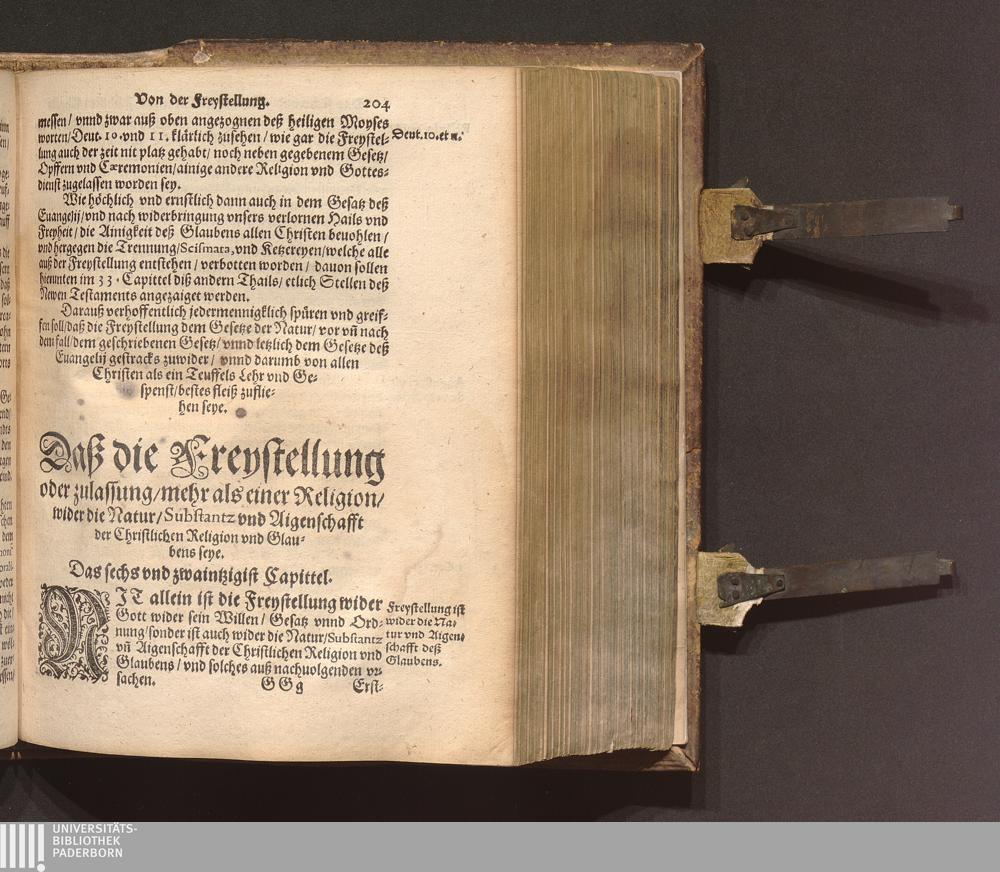 Von der Freystellung. 204
messen / vnnd zwar auß oben angezognen deß heiligen Moyses
worten / Deut. 10. vnd 11. klärlich zusehen / wie gar die Freystel-
lung auch der zeit nit platz gehabt / noch neben gegebenem Gesetz /
Opffern vnd Cæremonien / ainige andere Religion vnd Gottes-
dienst zugelassen worden sey.
Deut. 10. et 11.
Wie höchlich vnd ernstlich dann auch in dem Gesatz deß
Euangelij / vnd nach widerbringung vnsers verlornen Hails vnd
Freyheit / die Ainigkeit deß Glaubens allen Christen beuohlen /
vnd hergegen die Trennung / Scismata, vnd Ketzereyen / welche alle
auß der Freystellung entstehen / verbotten worden / dauon sollen
hieunten im 33. Capittel diß andern Thails / etlich Stellen deß
Newen Testaments angezaiget werden.
Darauß verhoffentlich jedermennigklich spüren vnd greif-
fen soll / daß die Freystellung dem Gesetze der Natur / vor vñ nach
dem fall / dem geschriebenen Gesetz / vnnd letzlich dem Gesetze deß
Euangelij gestracks zuwider / vnnd darumb von allen
Christen als ein Teuffels Lehr vnd Ge-
spenst / bestes fleiß zuflie-
hen seye.
Daß die Freystellung
oder zulassung / mehr als einer Religion /
wider die Natur / Substantz vnd Aigenschafft
der Christlichen Religion vnd Glau-
bens seye.
Das sechs vnd zwaintzigist Capittel.
NIT allein ist die Freystellung wider
Gott wider sein Willen / Gesatz vnnd Ord-
nung / sonder ist auch wider die Natur / Substantz
vñ Aigenschafft der Christlichen Religion vnd
Glaubens / vnd solches auß nachuolgenden vr-
sachen.
Freystellung ist
wider die Na-
tur vnd Aigen-
schafft deß
Glaubens.
GGg Erst-
UNIVERSITÄTS-
BIBLIOTHEK
PADERBORN